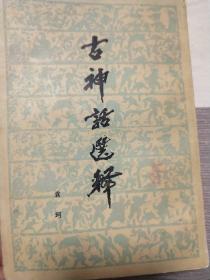 古神話選釋
袁珂